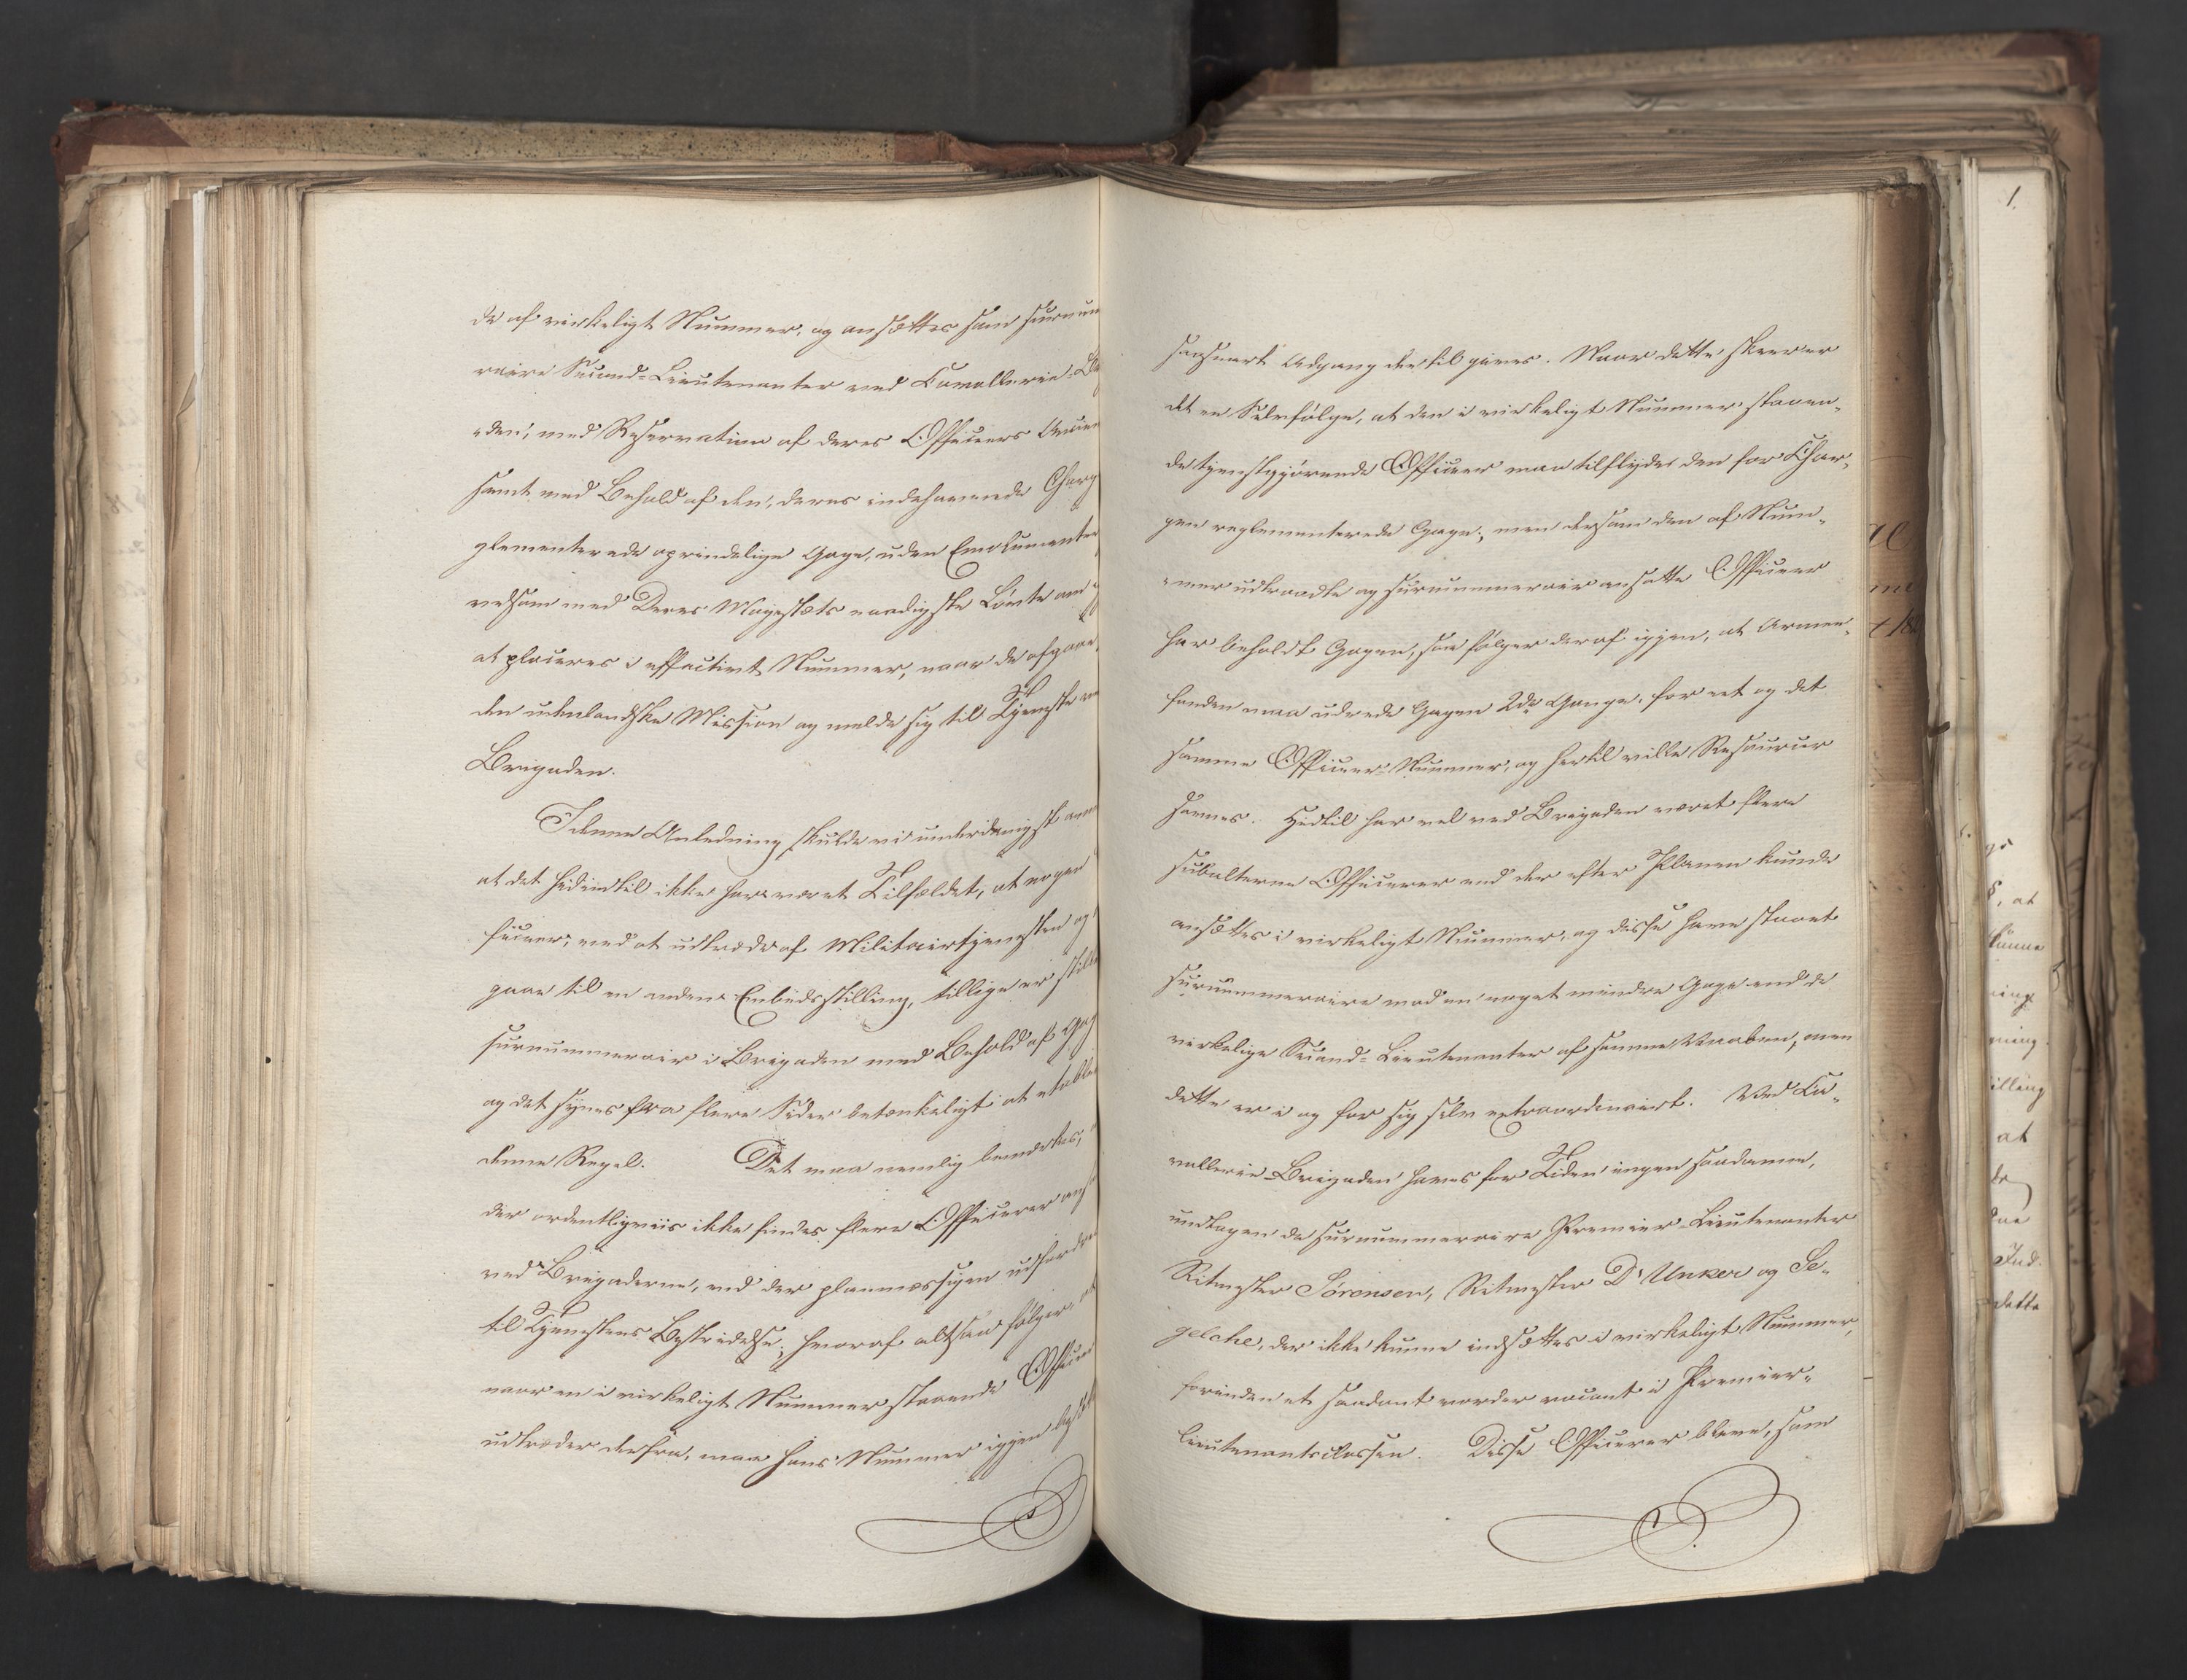 de af virkeligt Nummer, og ansættes som surnum
raire Second-Lieutenanter ved Cavallerie-B
eden, med Reservation af deres Officeers Ancien
samt med Behold af den, deres indehavende Charg
glementerede oprindelige Gage, uden Emolumenter
velsom med Deres Majestæts naadigste Løvte om
at placeres i effectivt Nummer, naar de afgaae
den udenlandske Mission og melde sig til Tjeneste ve
Brigaden.
I denne Anledning skulde vi underdanigst anm
at det hidindtil ikke har været Tilfældet, at nogen
ficeer, ved at udtræde af Militairtjenesten og
gaae til en anden Embedsstilling, tillige er stille
surnummerair i Brigaden med Behold af Gag
og det synes fra flere Sider betænkeligt at etable
denne Regel. Det maa nemlig bemærkes,
der ordentligviis ikke findes flere Officerer ans
ved Brigaderne, end der planmæssigen udfordre
til Tjenestens Bestridelse; hvoraf altsaa følger at
naar en i virkeligt Nummer staaende Officeer
udtræder derfra, maa hans Nummer igjen besæt
saasnart Adgang dertil gives. Naar dette skeer er
det en Selvfølge, at den i virkeligt Nummer staaen-
de tjenstgjørende Officeer maa tilflyde den for Char-
gen reglementerede Gage; men dersom den af Num-
mer udtraadte og surnummerair ansatte Officeer
har beholdt Gagen, saa følger deraf igjen, at Armee-
fonden maa udrede Gagen 2de Gange, for eet og det
samme Officeer-Nummer, og hertil ville Resourcer
savnes. Hidtil har vel ved Brigaden været flere
subalterne Officerer end der efter Planen kunde
ansættes i virkeligt Nummer, og disse have staaet
surnummeraire mod en noget mindre Gage end de
virkelige Second-Lieutenanter af samme Vaaben, men
dette er i og for sig selv extraordinairt. Ved Ca-
vallerie-Brigaden haves for Tiden ingen saadanne,
undtagen de surnummeraire Premier-Lieutenanter
Ritmester Sörensen, Ritmester D' Unker og Se-
gelcke, der ikke kunne indsættes i virkeligt Nummer,
forinden et saadant vorder vacant i Premier-
lieutenantsclassen. Disse Officerer bleve, som